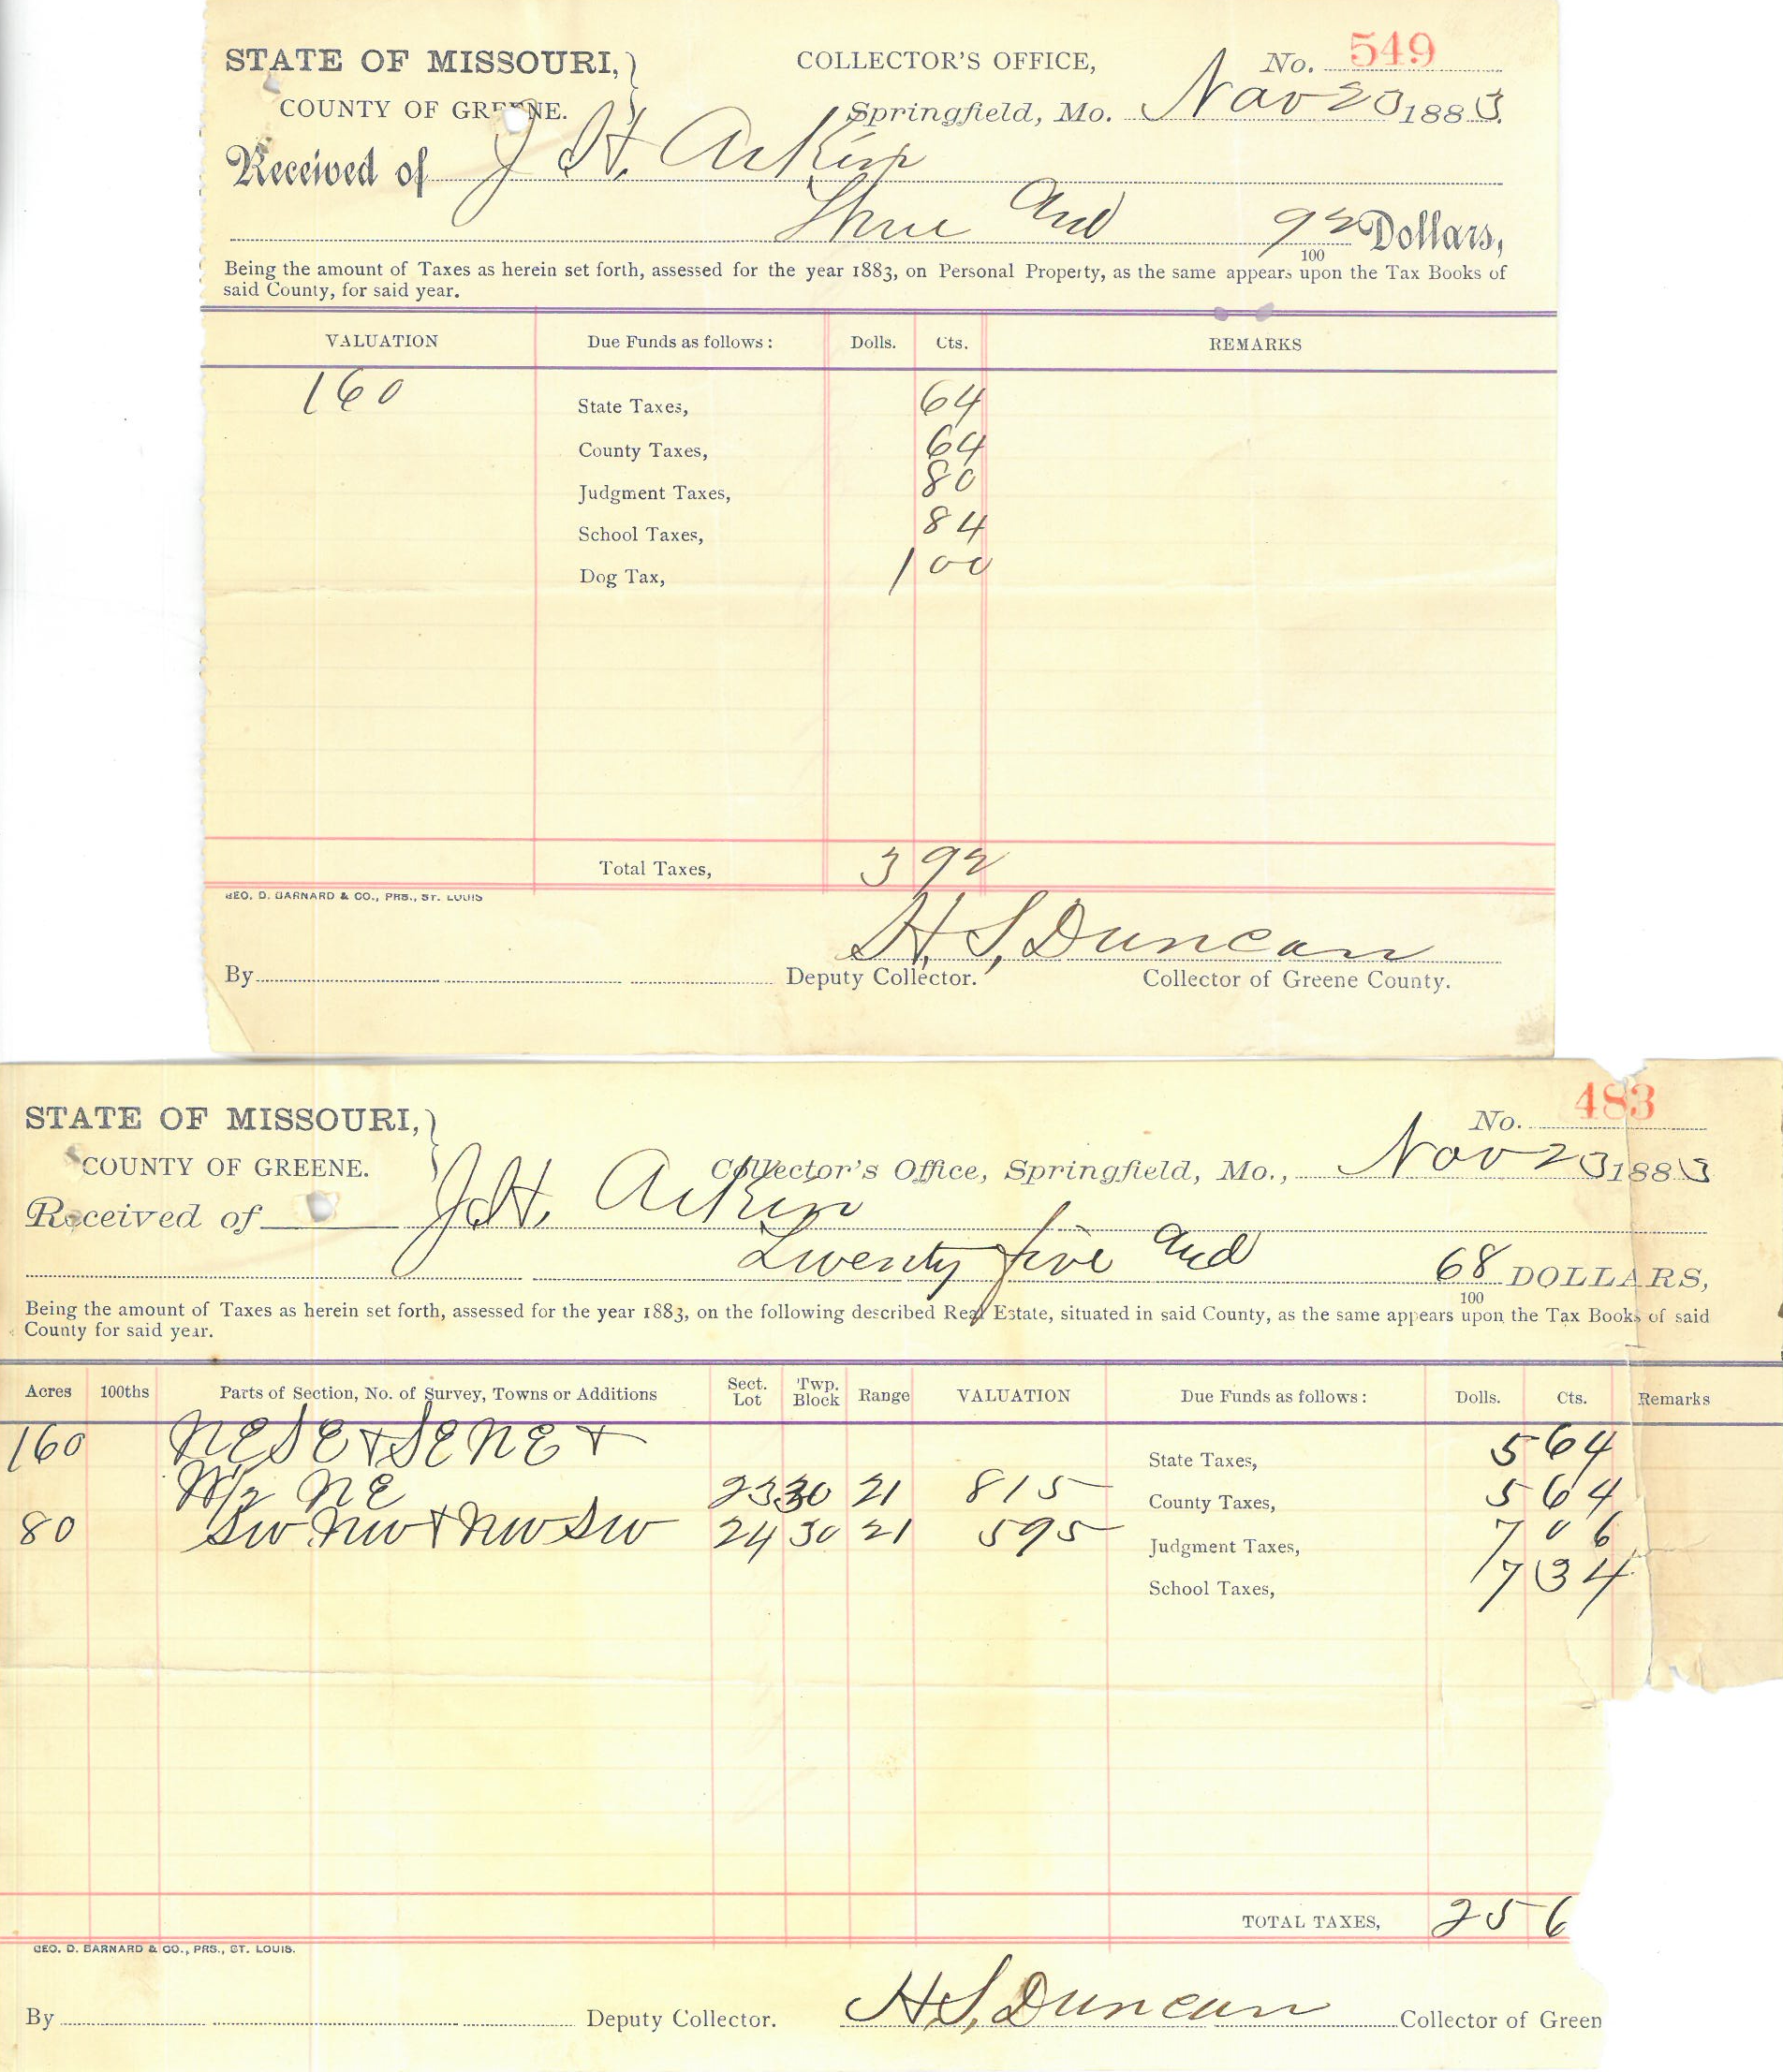 STATE OF MISSOURI, } COLLECTOR'S OFFICE, No. 549
COUNTY OF GREENE. Springfield, Mo. Nov 23 1883.
Received of J H. Aikin
Three and 92/100 Dollars,
Being the amount of Taxes as herein set forth, assessed for the year 1883, on Personal Property, as the same appears upon the Tax Books of
said County, for said year.
VALUATION Due Funds as follows: Dolls. Cts. REMARKS
160 State Taxes, 64
County Taxes, 64
Judgment Taxes, 80
School Taxes, 84
Dog Tax, 1 00
Total Taxes, 3 92
GEO. D. BARNARD & CO., PRS., ST. LOUIS
H. S. Duncan
By Deputy Collector. Collector of Greene County.
STATE OF MISSOURI, } No. 483
COUNTY OF GREENE. Collector's Office, Springfield, Mo., Nov 23 1883
Received of J. H. Aikin
Twenty five and 68/100 DOLLARS,
Being the amount of Taxes as herein set forth, assessed for the year 1883, on the following described Real Estate, situated in said County, as the same appears upon the Tax Books of said
County for said year.
Acres 100ths Parts of Section, No. of Survey, Towns or Additions Sect. Lot Twp. Block Range VALUATION Due Funds as follows: Dolls. Cts. Remarks
160 NE SE + SE NE + State Taxes, 5 64
W/2 NE 23 30 21 815 County Taxes, 5 64
80 SW NW + NW SW 24 30 21 595 Judgment Taxes, 7 06
School Taxes, 7 34
TOTAL TAXES, 25 6
GEO. D. BARNARD & CO., PRS., ST. LOUIS.
By Deputy Collector. H. S. Duncan Collector of Green